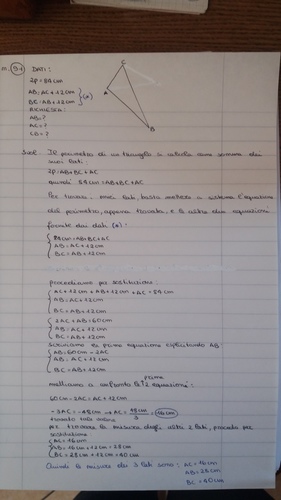 n. 94 DATI:
C
2p = 84 cm
AB = AC + 12 cm
BC = AB + 12 cm } (*)
A
RICHIESTA:
AB = ?
AC = ?
CB = ?
B
Sol: Il perimetro di un triangolo si calcola come somma dei
suoi lati:
2p = AB + BC + AC
quindi 84 cm = AB + BC + AC
Per trovare i suoi lati, basta mettere a sistema l'equazione
del perimetro, appena trovata, e le altre due equazioni
fornite dai dati (*):
{ 84 cm = AB + BC + AC
AB = AC + 12 cm
BC = AB + 12 cm
procediamo per sostituzione:
{ AC + 12 cm + AB + 12 cm + AC = 84 cm
AB = AC + 12 cm
BC = AB + 12 cm
{ 2AC + AB = 60 cm
AB = AC + 12 cm
BC = AB + 12 cm
scriviamo la prima equazione esplicitando AB:
{ AB = 60 cm - 2AC
AB = AC + 12 cm
BC = AB + 12 cm
mettiamo a confronto le prime 2 equazioni:
60 cm - 2AC = AC + 12 cm
- 3AC = - 48 cm → AC = 48 cm / 3 = 16 cm
trovato
per trovare la misura degli altri 2 lati, procedo per
sostituzione
{ AC = 16 cm
AB = 16 cm + 12 cm = 28 cm
BC = 28 cm + 12 cm = 40 cm
Quindi le misure dei 3 lati sono: AC = 16 cm
AB = 28 cm
BC = 40 cm